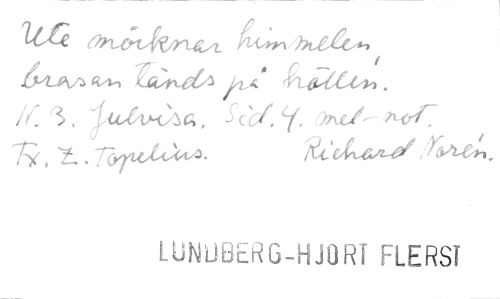 Ute mörknar himmelen,
brasan tänds på hällen.
N. 3. Julvisa. Sid. 4. mel-not.
Tx. Z. Topelius. Richard Norén.
LUNDBERG-HJORT FLERST